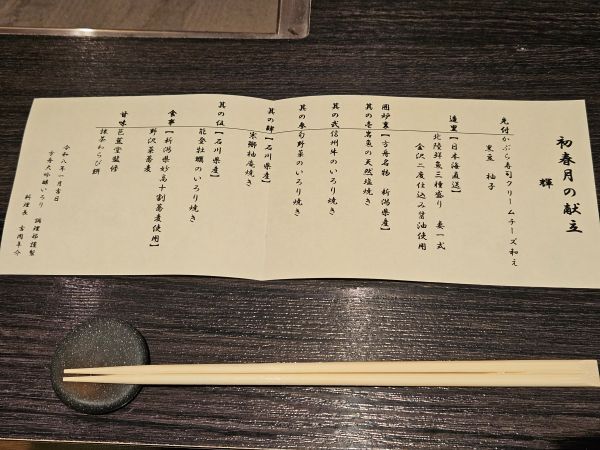 初春月の献立
輝
先付
かぶら寿司クリームチーズ和え
黒豆 柚子
造里
【日本海直送】
北陸鮮魚三種盛り 妻一式
金沢二度仕込み醤油使用
囲炉裏
【方舟名物 新潟県】
其の壱
岩魚の天然塩焼き
其の弐
信州牛のいろり焼き
其の参
旬野菜のいろり焼き
其の肆
【石川県産】
寒鰤柚庵焼き
其の伍
【石川県産】
能登牡蠣のいろり焼き
食事
【新潟県妙高十割蕎麦使用】
野沢菜蕎麦
甘味
芭蕉堂監修
抹茶わらび餅
令和八年一月吉日
方舟大吟醸いろり 調理部謹製
料理長